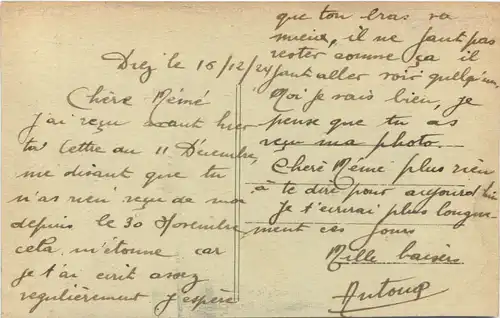 Diez le 16/12/24
Chère Mémé
J'ai reçu avant hier
ta lettre du 11 Décembre,
me disant que tu
n'as rien reçu de moi
depuis le 30 Novembre,
cela m'étonne car
je t'ai écrit assez
regulièrement J'espère
que ton bras va
mieux, il ne faut pas
rester comme ça il
faut aller voir quelqu'un,
Moi je vais bien, je
pense que tu as
reçu ma photo.
Cherè Mémé plus rien
à te dire pour aujourd'hui
Je t'ecrirai plus longue-
ment ces jours
Mille baisers